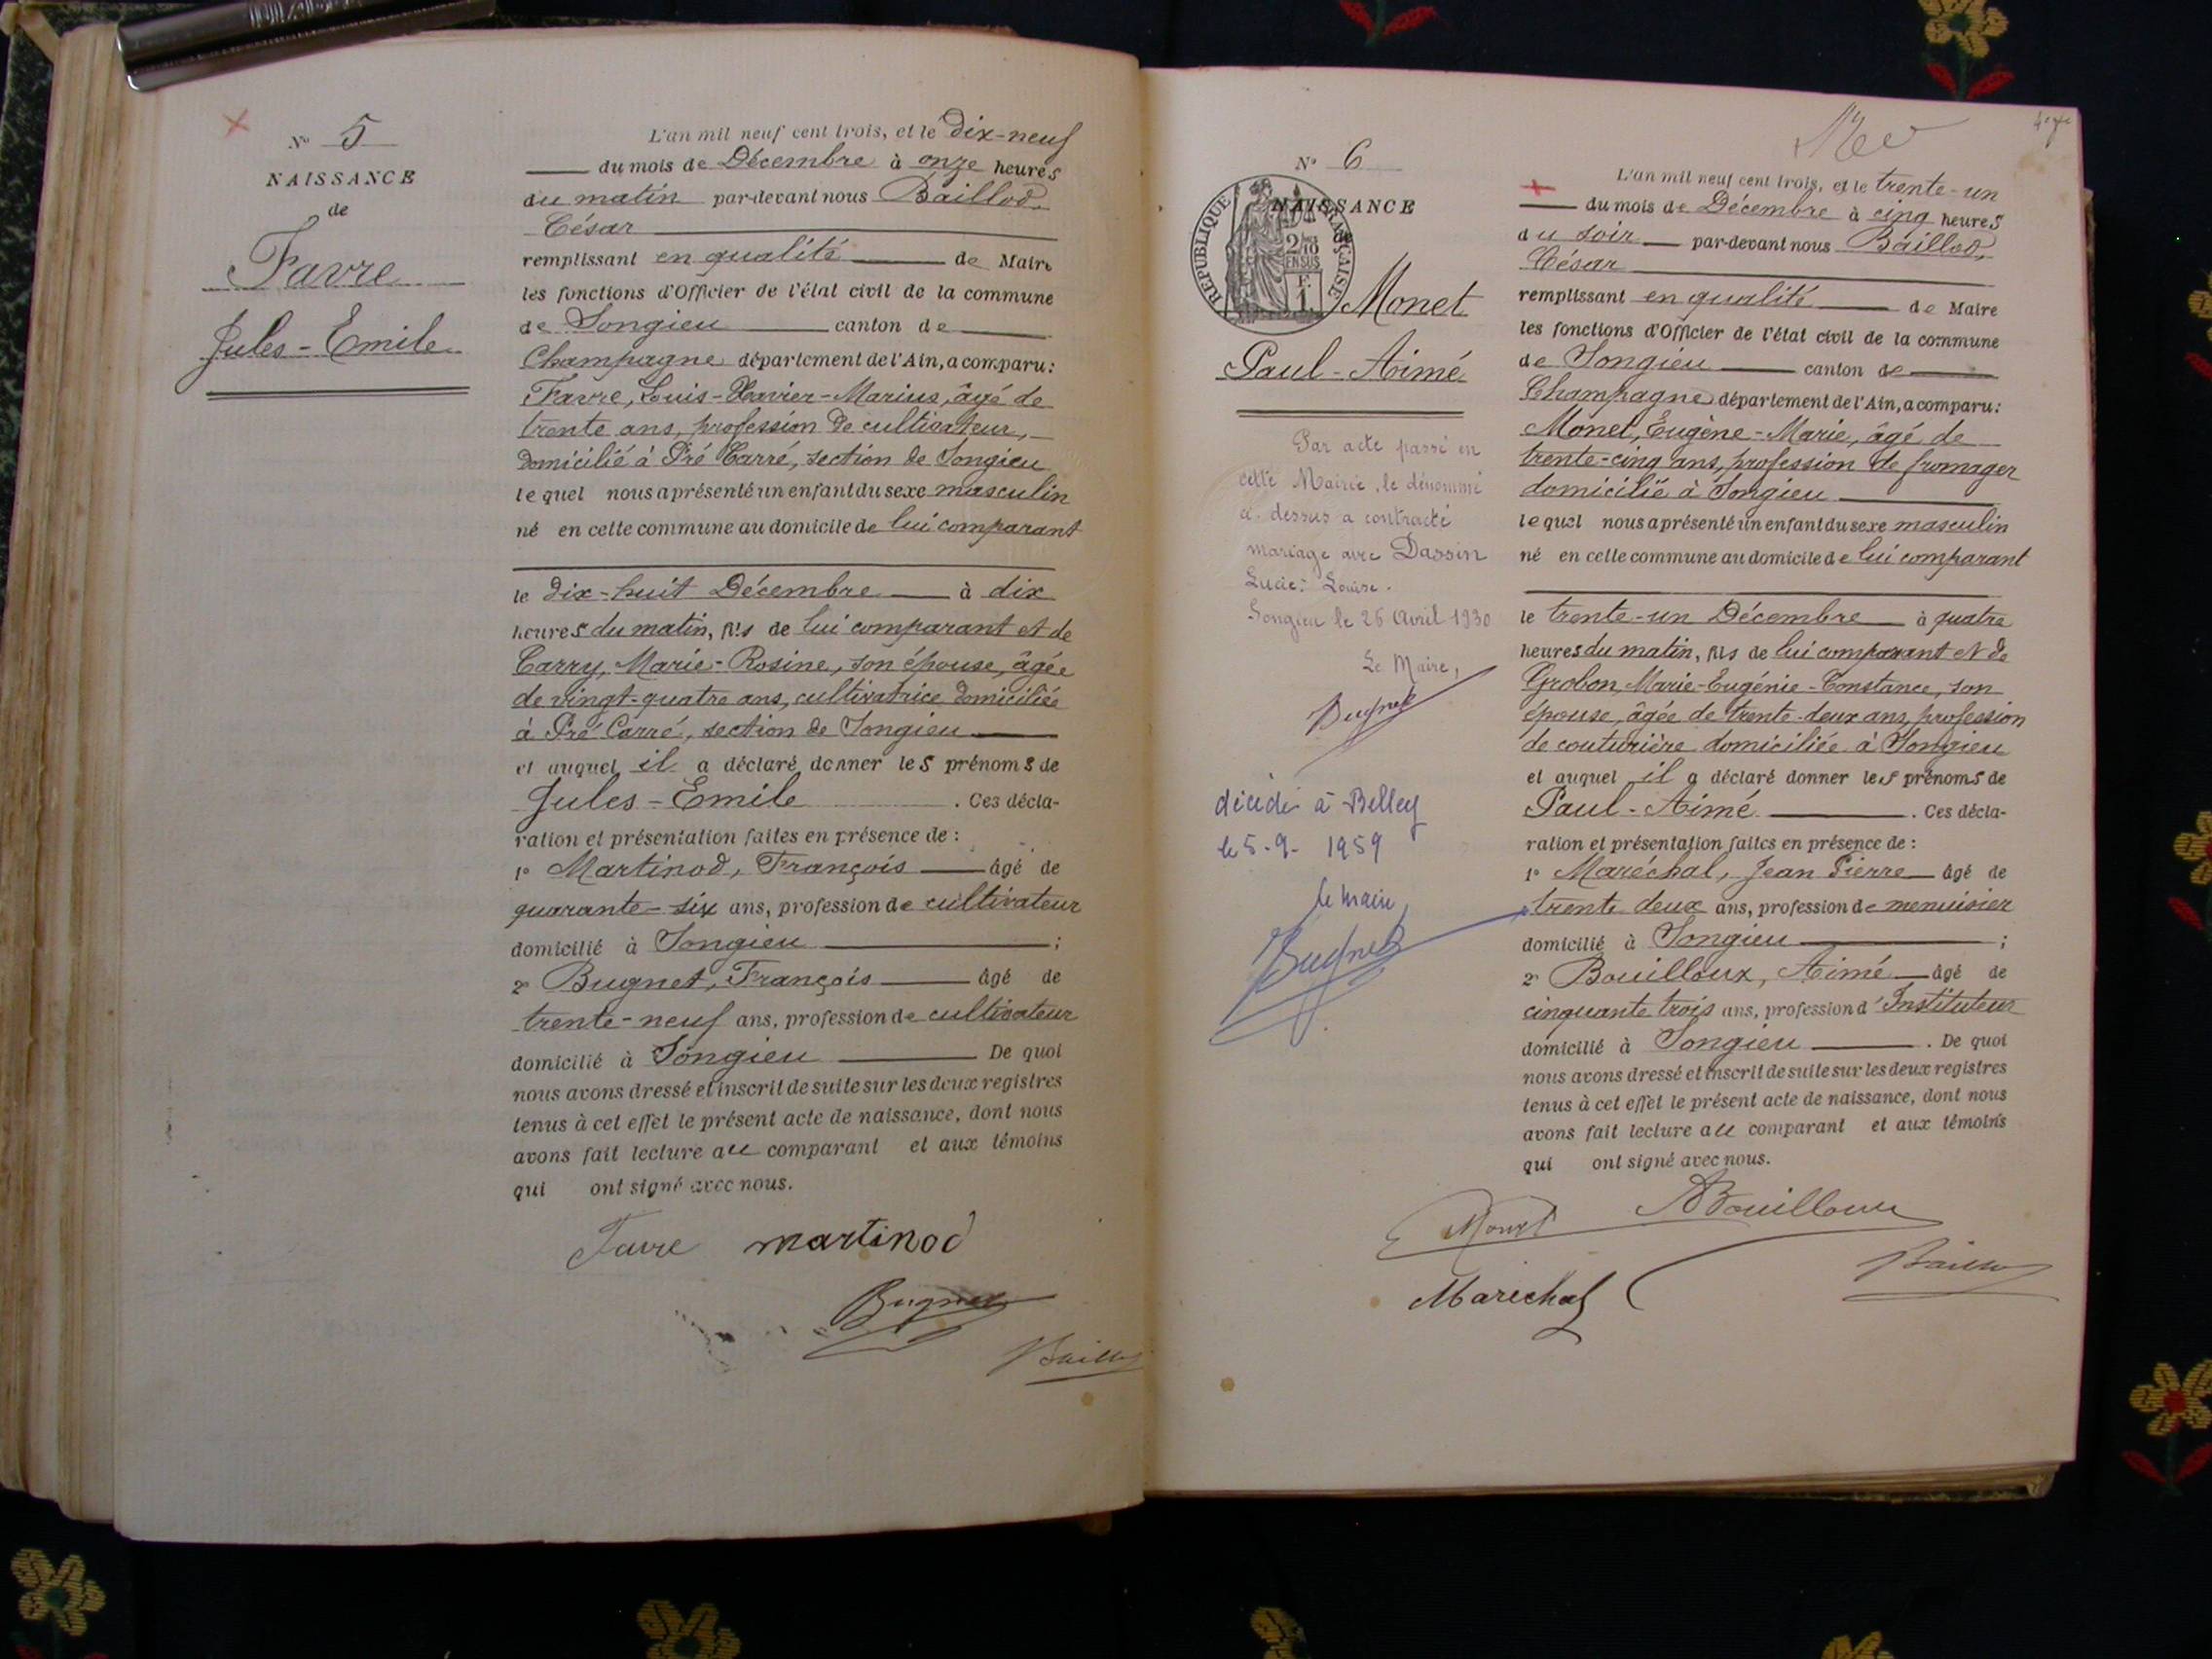 N° 5
NAISSANCE
de
Favre
Jules-Emile
L'an mil neuf cent trois, et le dix-neuf
du mois de Décembre à onze heures
du matin par-devant nous Baillod,
César
remplissant en qualité de Maire
les fonctions d'Officier de l'état civil de la commune
de Songieu canton de
Champagne département de l'Ain, a comparu:
Favre, Louis-Xavier-Marius, âgé de
trente ans, profession de cultivateur,
domicilié à Pré Carré, section de Songieu
lequel nous a présenté un enfant du sexe masculin
né en cette commune au domicile de lui comparant
le dix-huit Décembre à dix
heures du matin, fils de lui comparant et de
Carry, Marie-Rosine, son épouse, âgée
de vingt-quatre ans, cultivatrice domiciliée
à Pré Carré, section de Songieu
et auquel il a déclaré donner les prénoms de
Jules-Emile. Ces décla-
ration et présentation faites en présence de :
1° Martinod, François âgé de
quarante-six ans, profession de cultivateur
domicilié à Songieu ;
2° Bugnet, François âgé de
trente-neuf ans, profession de cultivateur
domicilié à Songieu De quoi
nous avons dressé et inscrit de suite sur les deux registres
tenus à cet effet le présent acte de naissance, dont nous
avons fait lecture au comparant et aux témoins
qui ont signé avec nous.
Favre martinod
Bugnet
Baillod
N° 6
NAISSANCE
de
REPUBLIQUE FRANÇAISE
2/10
EN SUS
1 F.
Monet
Paul-Aimé
Par acte passé en
cette Mairie, le dénommé
ci-dessus a contracté
mariage avec Dassin
Lucie-Louise.
Songieu le 26 Avril 1930
Le Maire,
Bugnet
décédé à Belley
le 5-9-1959
le maire,
Bugnet
L'an mil neuf cent trois, et le trente-un
du mois de Décembre à cinq heures
du soir par-devant nous Baillod,
César
remplissant en qualité de Maire
les fonctions d'Officier de l'état civil de la commune
de Songieu canton de
Champagne département de l'Ain, a comparu:
Monet, Eugène-Marie, âgé de
trente-cinq ans, profession de fromager
domicilié à Songieu
lequel nous a présenté un enfant du sexe masculin
né en cette commune au domicile de lui comparant
le trente-un Décembre à quatre
heures du matin, fils de lui comparant et de
Grobon, Marie-Eugénie-Constance, son
épouse, âgée de trente-deux ans, profession
de couturière domiciliée à Songieu
et auquel il a déclaré donner les prénoms de
Paul-Aimé. Ces décla-
ration et présentation faites en présence de :
1° Maréchal, Jean Pierre âgé de
trente deux ans, profession de menuisier
domicilié à Songieu ;
2° Bouilloux, Aimé âgé de
cinquante trois ans, profession d'Instituteur
domicilié à Songieu. De quoi
nous avons dressé et inscrit de suite sur les deux registres
tenus à cet effet le présent acte de naissance, dont nous
avons fait lecture au comparant et aux témoins
qui ont signé avec nous.
Monet ABouilloux
Marechal Baillod